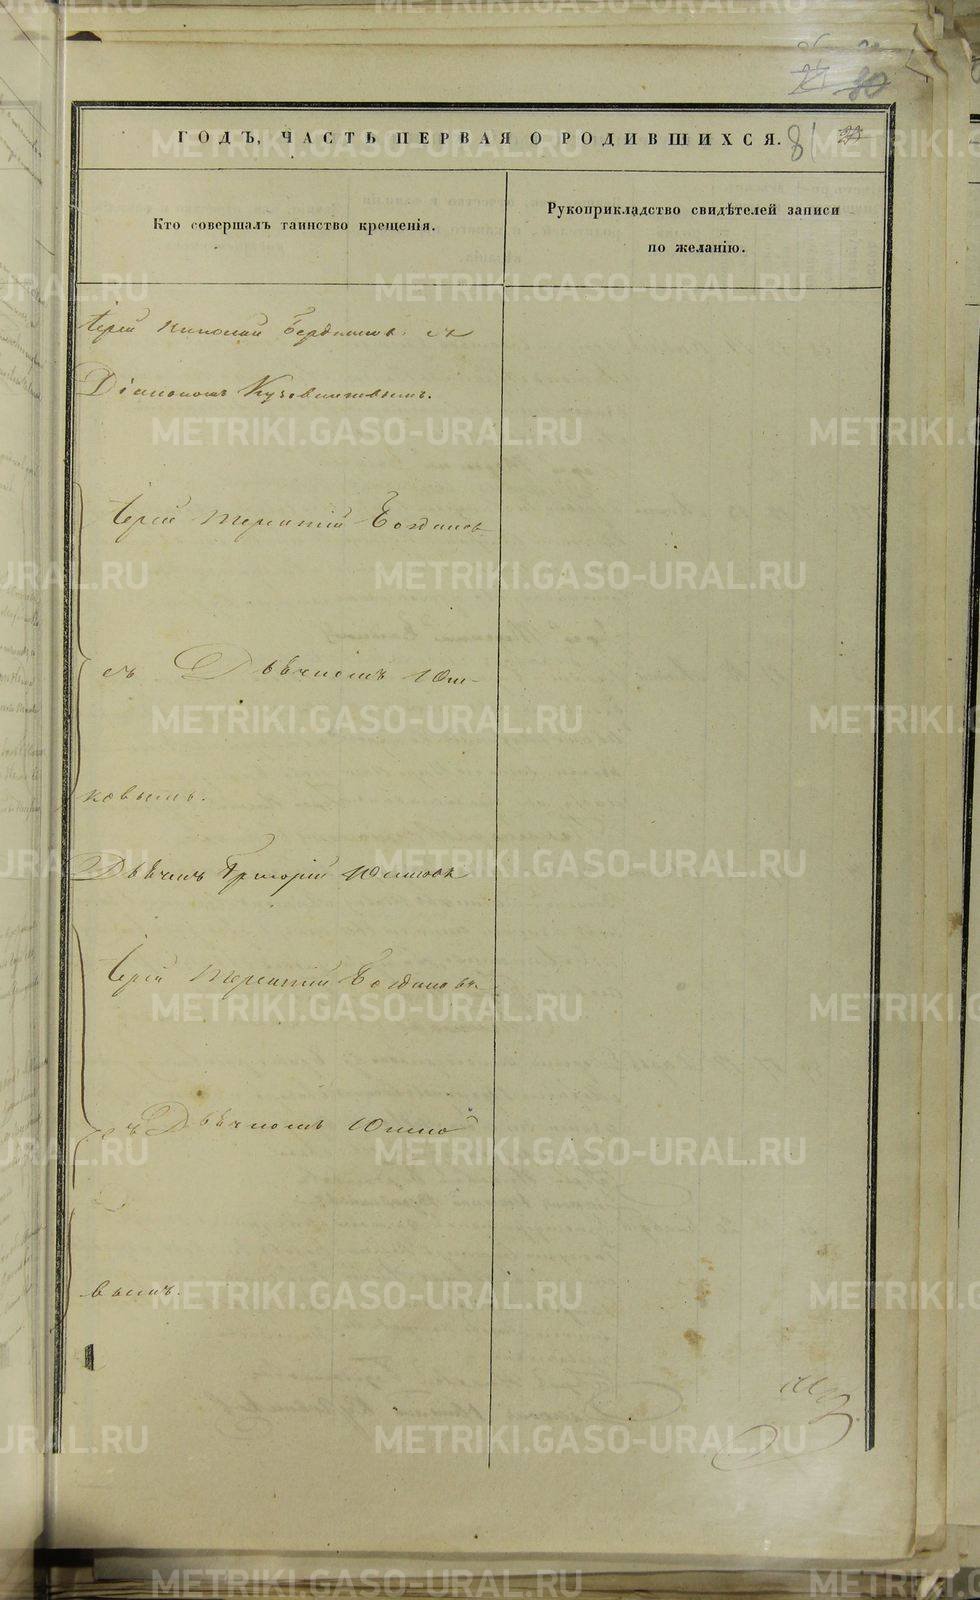 80
ГОДЪ, ЧАСТЬ ПЕРВАЯ О РОДИВШИХСЯ. 81
Кто совершалъ таинство крещенія.
Рукоприкладство свидѣтелей записи
по желанію.
Іерей Николай Бердниковъ съ
Діакономъ
Іерей Терентій Богдановъ
съ Дьячкомъ Юш-
ковымъ.
Дьячекъ Григорій Юшковъ
Іерей Терентій Богдановъ
съ Дьячкомъ Юшко
вымъ.
METRIKI.GASO-URAL.RU